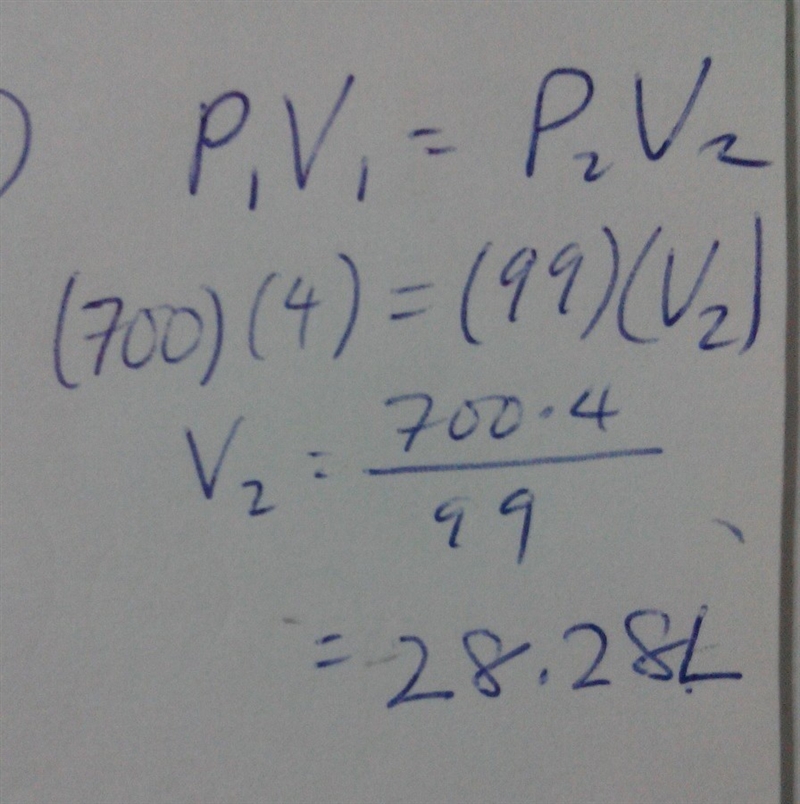 ) P₁V₁ = P₂V₂
(700)(4) = (99)(V₂)
V₂ = 700·4 / 99
= 28.28L